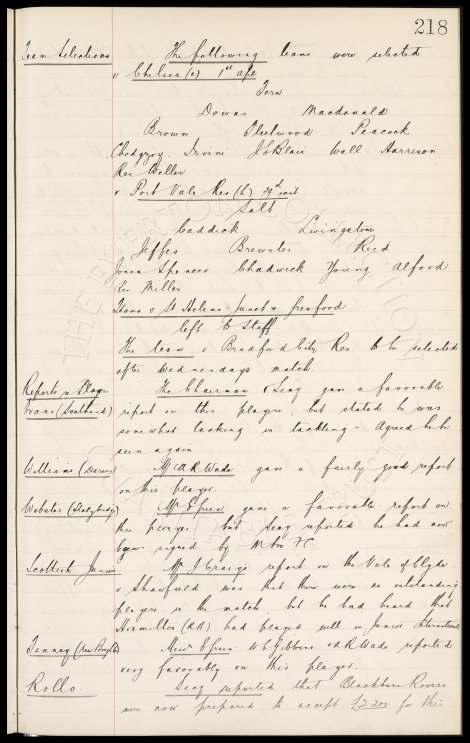 218
Team Selections The following teams were selected
v Chelsea (a) 1st Apl
Fern
Downs Macdonald
Brown Fleetwood Peacock
Chedgzoy Irvine J C Blair Wall Harrison
Res Weller
v Port Vale Res (h) 29th inst
Salt
Caddick Livingstone
Jeffes Brewster Reed
Jones Spencer Chadwick Young Alford
Res Miller
Teams v St Helens Junct & Gresford
left to Staff
The team v Bradford City Res to be selected
after Wednesdays match
Reports re Players The Chairman & Secy gave a favorable
Evans (Southend) report on this player, but stated he was
somewhat lacking in tackling - Agreed he be
seen again
Williams (Darwen) Mr A R Wade gave a fairly good report
on this player
Webster (Stalybridge) Mr E Green gave a favorable report on
this player but Secy reported he had now
been signed by FC
Scottish Juniors Mr J Craig's report on the Vale of Clyde
v Shawfield was that there were no outstanding
players in the match, but he had heard that
Hamilton (RB) had played well in Junior Internationals
Tenney (New Brighton) Messrs E Green W C Gibbins & A R Wade reported
very favorably on this player.
Rollo. Secy reported that Blackburn Rovers
were now prepared to accept £2200 for this
THE EVERTON COLLECTION